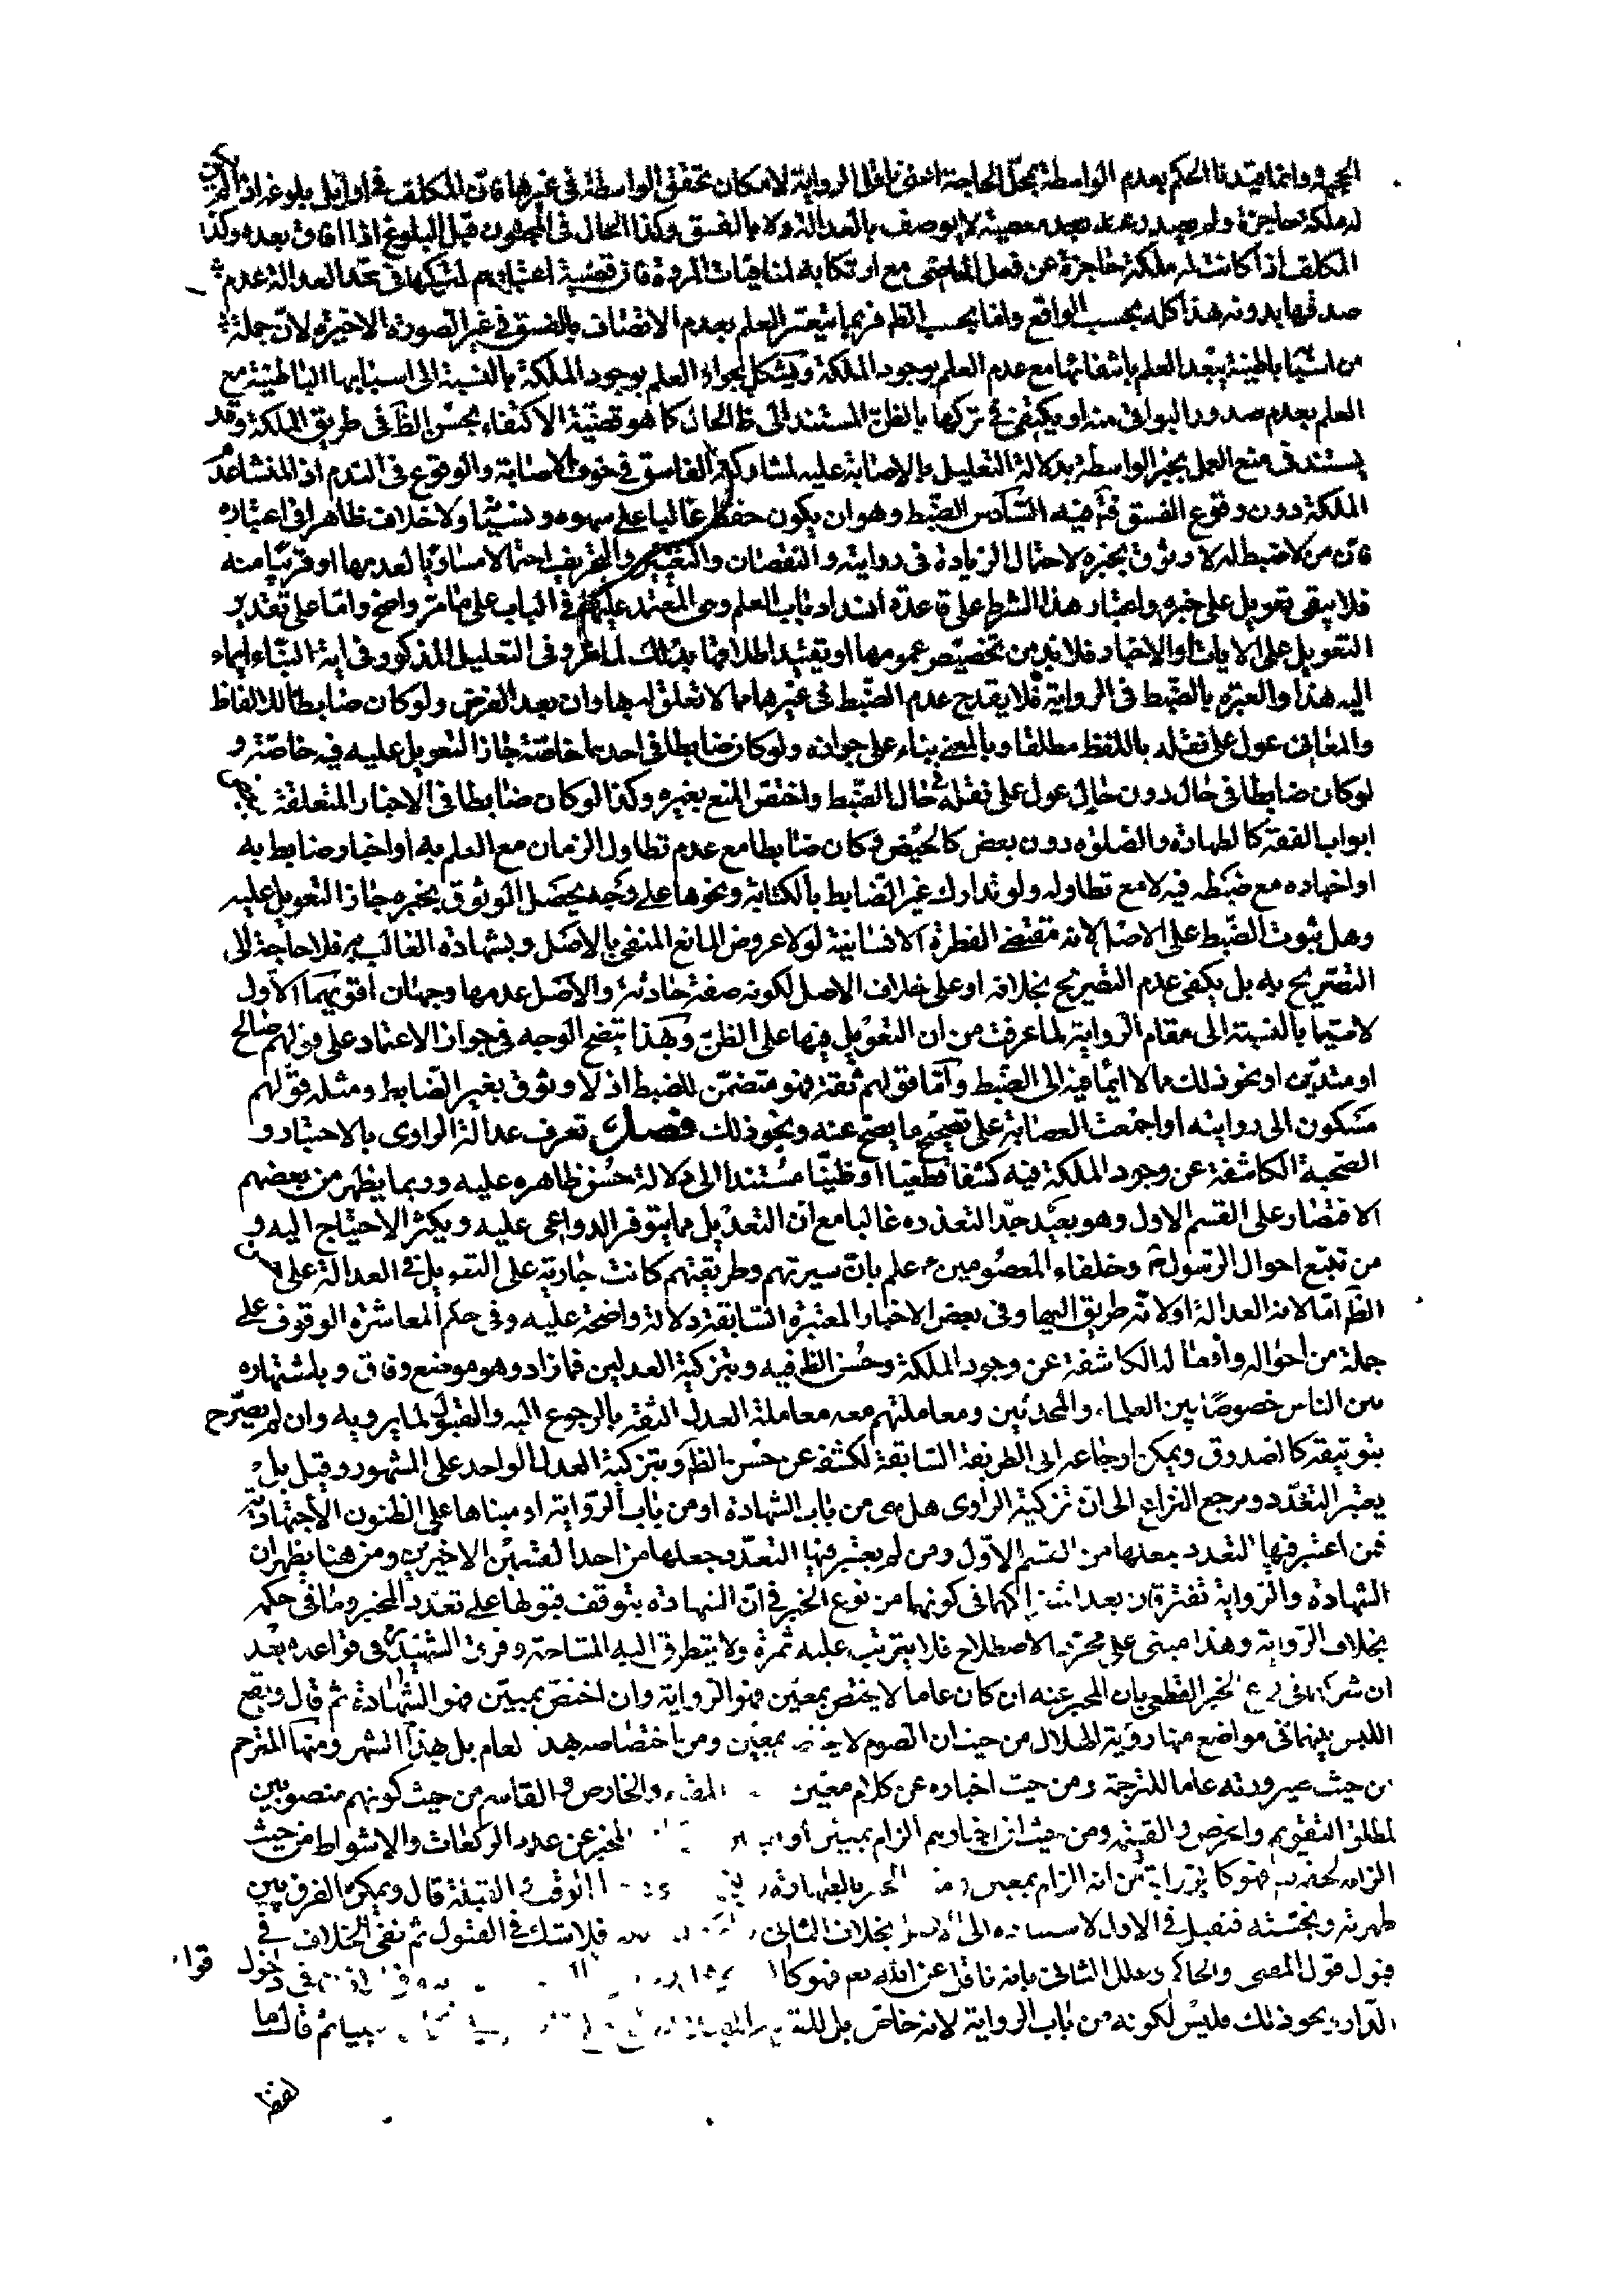 الحجية وانما قيدنا الحكم بعدم الواسطة بمحل الحاجة اعنى ناقل الرواية لامكان تحقق الواسطة في غيرها فان المكلف في اوايل بلوغه اذا لم يكن
له ملكة حاجزة ولم يصدر عنه بعد معصية لا يوصف بالعدالة ولا بالفسق وكذا الحال في المجنون قبل البلوغ اذا افاق بعده وكذا
المكلف اذا كانت له ملكة حاجزة عن فعل المعاصى مع ارتكابه لمنافيات المروة فان قضية اعتبارهم لتركها في حد العدالة عدم
صدقها بدونه هذا كله بحسب الواقع واما بحسب الظ فربما يتعسر العلم بعدم الاتصاف بالفسق في غير الصورة الاخيرة لان جملة
من اسبابه باطنية يبعد العلم بانتفائها مع عدم العلم بوجود الملكة ويشكل بجواز العلم بوجود الملكة بالنسبة الى اسبابها الباطنية مع
العلم بعدم صدور البواقى منه او يكتفى في تركها بالظن المستند الى ظ الحال كما هو قضية الاكتفاء بحسن الظ في طريق الملكة وقد
يستند في منع العمل بخبر الواسطة بدلالة التعليل بالاصابة عليه لمشاركته الفاسق في خوف الاصابة والوقوع في الندم اذ المنشا عدم
الملكة دون وقوع الفسق فتأ فيه السادس الضبط وهو ان يكون حفظه غالبا على سهوه ونسيانه ولا خلاف ظاهرا في اعتباره
فان من لا ضبط له لا وثوق بخبره لاحتمال الزيادة في روايته والنقصان والتغيير والتحريف احتمالا مساويا لعدمها او قريبا منه
فلا يبقى تعويل على خبره واعتبار هذا الشرط على قاعدة انسداد باب العلم وهى المعتمد عليها في الباب على ما مر واضح واما على تقدير
التعويل على الايات او الاخبار فلا بد من تخصيص عمومها او تقييد اطلاقها بذلك لما مر وفى التعليل المذكور في اية النباء ايماء
اليه هذا والعبرة بالضبط في الرواية فلا يقدح عدم الضبط في غيرها مما لا تعلق له بها وان بعد الفرض ولو كان ضابطا للالفاظ
والمعانى عول على نقله باللفظ مطلقا وبالمعنى بناء على جوازه ولو كان ضابطا في احدهما خاصة جاز التعويل عليه فيه خاصة و
لو كان ضابطا في حال دون حال عول على نقله في حال الضبط واختص المنع بغيره وكذا لو كان ضابطا في الاخبار المتعلقة ببعض
ابواب الفقه كالطهارة والصلوة دون بعض كالحيض او كان ضابطا مع عدم تطاول الزمان مع العلم به او اخبار ضابط به
او اخباره مع ضبطه فيه لا مع تطاوله ولو تدارك غير الضابط بالكتابة ونحوها على وجه يحصل الوثوق بخبره جاز التعويل عليه
وهل ثبوت الضبط على الاصل لانه مقتضى الفطرة الانسانية لولا عروض المانع المنفى بالاصل وبشهادة الغالب به فلا حاجة الى
التصريح به بل يكفى عدم التصريح بخلافه او على خلاف الاصل لكونه صفة حادثة والاصل عدمها وجهان اقويهما الاول
لا سيما بالنسبة الى مقام الرواية لما عرفت من ان التعويل فيها على الظن وبهذا يتضح الوجه في جواز الاعتماد على قولهم صالح
او متدين او نحو ذلك مما لا ايماء فيه الى الضبط واما قولهم ثقة فهو متضمن للضبط اذ لا وثوق بغير الضابط ومثله قولهم
مسكون الى روايته او اجمعت العصابة على تصحيح ما يصح عنه ونحو ذلك فصل تعرف عدالة الراوى بالاختبار و
الصحبة الكاشفة عن وجود الملكة فيه كشفا قطعيا او ظنيا مستندا الى دلالة حسن ظاهره عليه وربما يظهر من بعضهم
الاقتصار على القسم الاول وهو بعيد جدا لتعذره غالبا مع ان التعديل مما يتوفر الدواعى عليه ويكثر الاحتياج اليه و
من تتبع احوال الرسول ص وخلفاء المعصومين ع علم بان سيرتهم وطريقتهم كانت جارية على التعويل في العدالة على حسن
الظ اما لانه العدالة او لانه طريق اليها وفى بعض الاخبار المعتبرة السابقة دلالة واضحة عليه وفى حكم المعاشرة الوقوف على
جملة من احواله وافعاله الكاشفة عن وجود الملكة وحسن الظ فيه وبتزكية العدلين فما زاد وهو موضع وفاق وباشتهاره
بين الناس خصوصا بين العلماء والمحدثين ومعاملتهم معه معاملة العدل الثقة بالرجوع اليه والقبول لما يرويه وان لم يصرح
بتوثيقه كالصدوق ويمكن ارجاعه الى الطريقة السابقة لكشفه عن حسن الظ وبتزكية العدل الواحد على المشهور وقيل بل
يعتبر التعدد ومرجع النزاع الى ان تزكية الراوى هل هى من باب الشهادة او من باب الرواية او مبناها على الظنون الاجتهادية
فمن اعتبر فيها التعدد جعلها من القسم الاول ومن لم يعتبر فيها التعدد جعلها من احد القسمين الاخيرين ومن هنا يظهر ان
الشهادة والرواية تفترقان بعد اشتراكهما في كونهما من نوع الخبر في ان الشهادة يتوقف قبولها على تعدد المخبر وما في حكمه
بخلاف الرواية وهذا مبنى على مجرد الاصطلاح فلا يترتب عليه ثمرة ولا يتطرق اليه المشاحة وفرق الشهيد ره في قواعده بعد
ان شركهما في الخبر القطعى بان المخبر عنه ان كان عاما لا يختص بمعين فهو الرواية وان اختص بمعين فهو الشهادة ثم قال ويقع
اللبس بينهما في مواضع منها رؤية الهلال من حيث ان الصوم لا يختص بمعين ومن اختصاصه بهذا العام بل بهذا الشهر ومنها المترجم
من حيث صيرورته عاما للترجمة ومن حيث اخباره عن كلام معين والخارص والقاسم من حيث كونهم منصوبين
لمطلق التقويم والخرص والقسمة ومن حيث ان اخبارهم الزام بمعين المخبر عن عدد الركعات والاشواط من حيث
فهو كالرواية من انه الزام بمعين بالطهارة القبلة قال ويمكن الفرق بين
طهرته ونجسته فيقبل في الاول لاستناده الى الاصل بخلاف الثانى فلا شك في القبول ثم نفى الخلاف في
قبول قول المفتى والحاكم وعلل الثانى بانه ناقل عن الله تعم فهو دخول قول
الدار ونحو ذلك فليس لكونه من باب الرواية لانه خاص بل